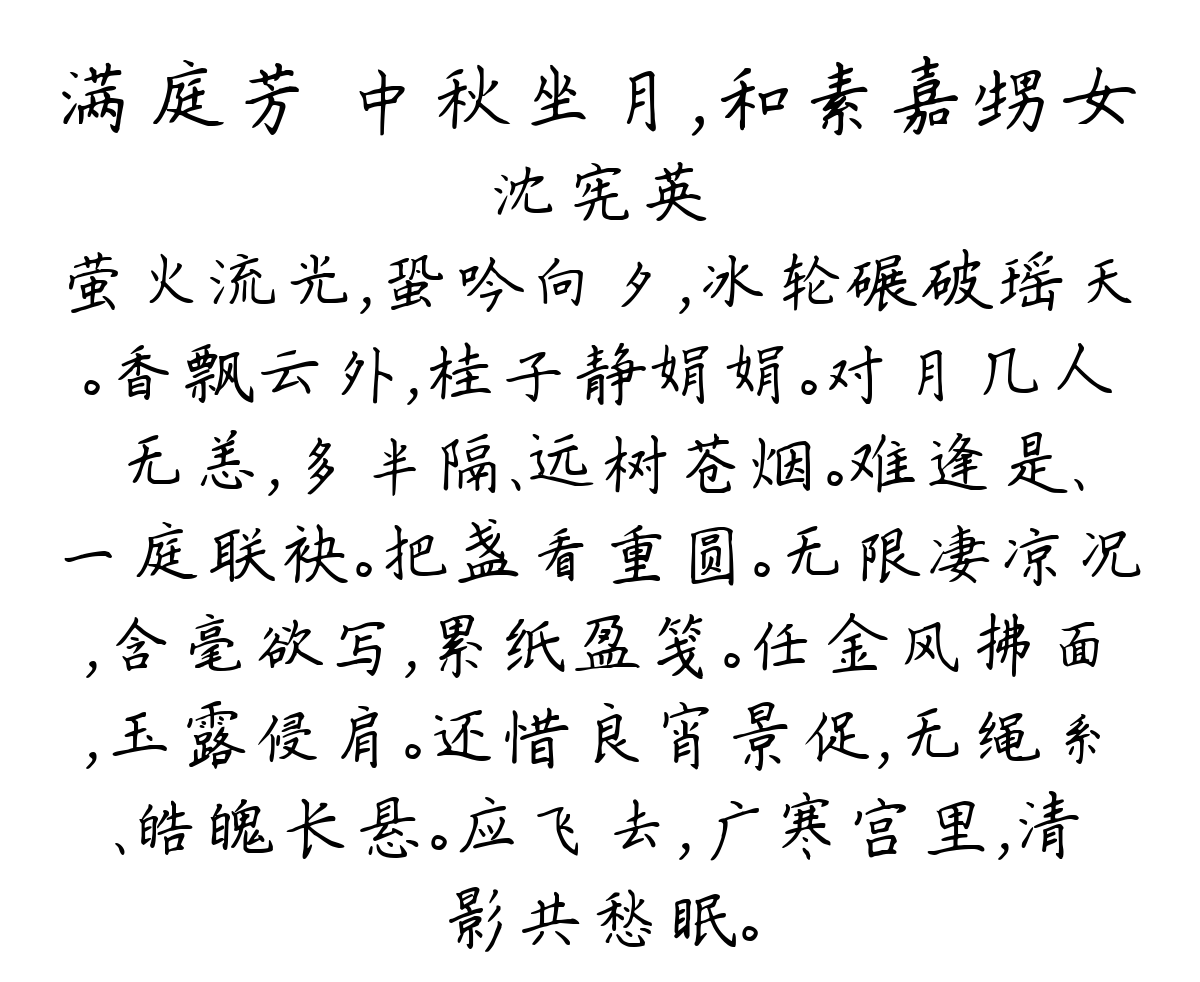 满庭芳 中秋坐月,和素嘉甥女
沈宪英
萤火流光,蛩吟向夕,冰轮碾破瑶天
。香飘云外,桂子静娟娟。对月几人
无恙,多半隔、远树苍烟。难逢是、
一庭联袂。把盏看重圆。无限凄凉况
,含毫欲写,累纸盈笺。任金风拂面
,玉露侵肩。还惜良宵景促,无绳系
、皓魄长悬。应飞去,广寒宫里,清
影共愁眠。